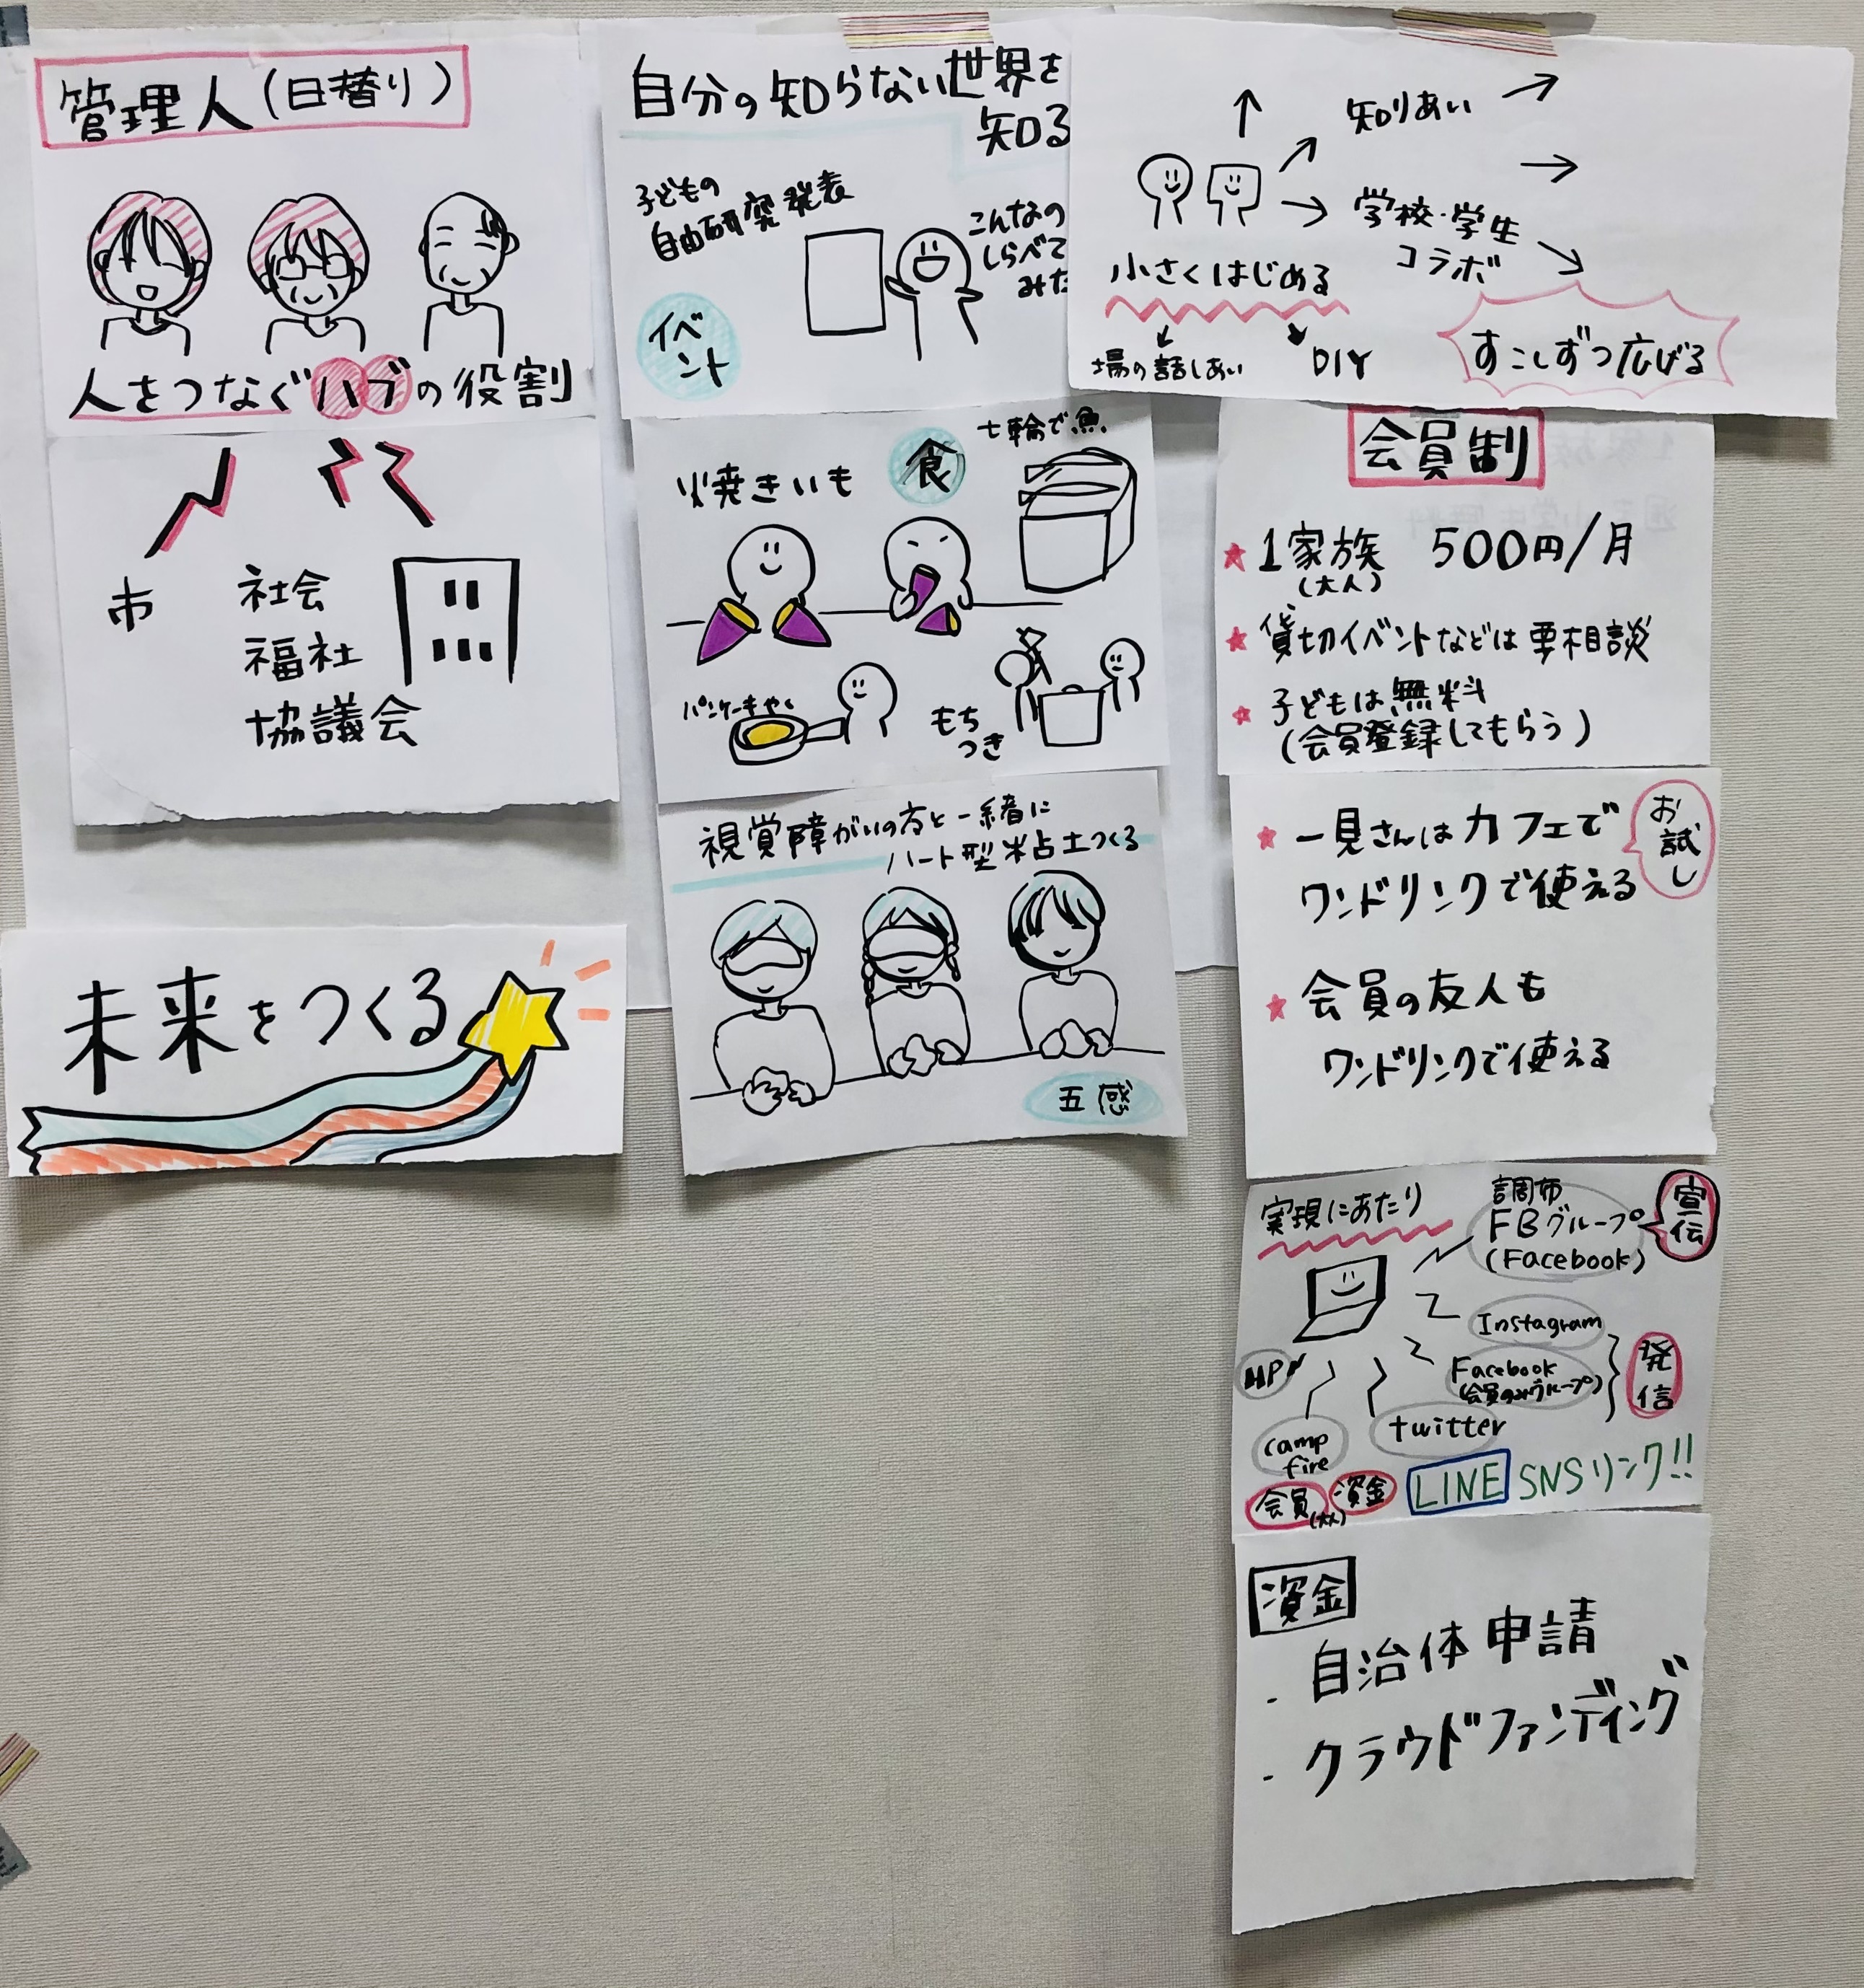 管理人(日替り)
人をつなぐハブの役割
市
社会
福祉
協議会
未来をつくる
自分の知らない世界を
知る
子どもの
自由研究発表
こんなの
しらべて
みた
イベ
ント
焼きいも
食
七輪で魚
パンケーキやく
もち
つき
視覚障がいの方と一緒に
ハート型粘土つくる
五感
知りあい
学校・学生
コラボ
小さくはじめる
場の話しあい
DIY
すこしずつ広げる
会員制
★1家族 500円/月
(大人)
★貸切イベントなどは要相談
★子どもは無料
(会員登録してもらう)
★一見さんはカフェで
ワンドリンクで使える
お試し
★会員の友人も
ワンドリンクで使える
実現にあたり
調布
FBグループ
(Facebook)
宣伝
Instagram
Facebook
(会員のみグループ)
発信
HP
twitter
camp
fire
会員
(大人)
資金
LINE SNSリンク!!
資金
- 自治体申請
- クラウドファンディング